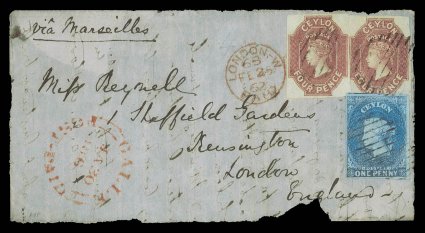 via Marseilles
CEYLON
CEYLON
FOUR PENCE
FOUR PENCE
LONDON-W
FE 25
62
Miss Reynell
1 Sheffield Gardens
Kensington
London
England
GALLE
CEYLON
POSTAGE
ONE PENNY